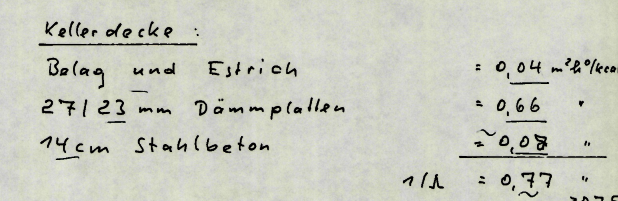 Kellerdecke :
Belag und Estrich = 0,04 m²h°/kcal
27/23 mm Dämmplatten = 0,66 "
14 cm Stahlbeton = 0,07 "
1/Λ = 0,77 "